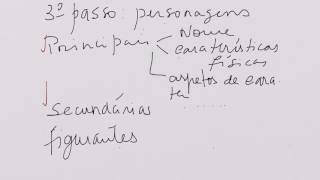 3º passo personagens
Principais
Nome
caraterísticas
físicas
aspetos de cara
ter
Secundárias
figurantes